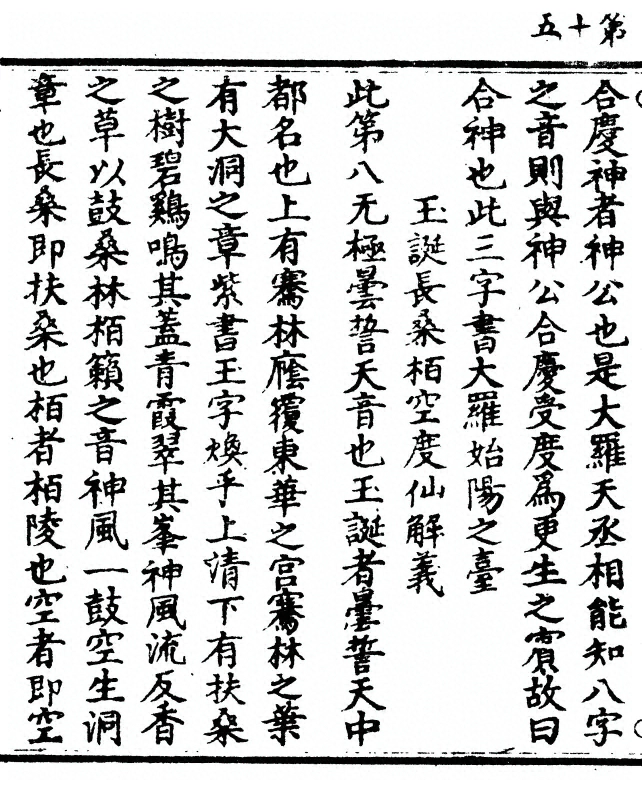 第十五
合慶神者神公也是大羅天丞相能知八字
之音則與神公合慶受度爲更生之賔故曰
合神也此三字書大羅始陽之臺
玉誕長桑栢空度仙解義
此第八无極曇誓天音也玉誕者曇誓天中
都名也上有騫林廕覆東華之宫騫林之葉
有大洞之章紫書玉字煥乎上清下有扶桑
之樹碧鷄鳴其蓋青霞翠其峯神風流反香
之草以鼓桑林栢籟之音神風一鼓空生洞
章也長桑即扶桑也栢者栢陵也空者即空